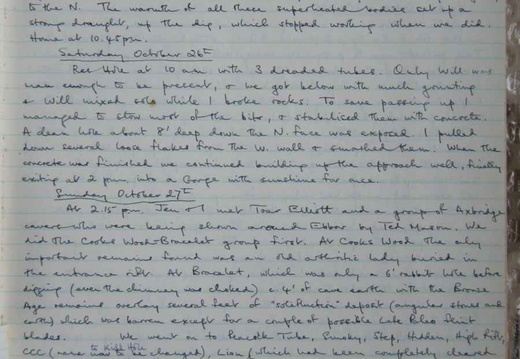 to the N. The warmth of all these superheated bodies set up a
strong draught, up the dig, which stopped working when we did.
Home at 10.45pm.
Saturday October 26th
Rat Hole at 10 am with 3 dreaded tubes. Only Will was
man enough to be present, & we got below with much grunting
& Will mixed solo while I broke rocks. To save passing up I
managed to stow most of the bits, & stabilised them with concrete.
A clean hole about 8' deep down the N. face was exposed. I pulled
down several loose flakes from the W. wall & smashed them. When the
concrete was finished we continued building up the approach wall, finally
exiting at 2 pm, into a Gorge with sunshine for once.
Sunday October 27th
At 2.15 pm. Jen & I met Toar Elliott and a group of Axbridge
cavers who were being shown around Ebbor by Ted Mason. We
did the Cooks Wood-Bracelet group first. At Cooks Wood the only
important remains found was an old arthritic lady buried in
the entrance rift. At Bracelet, which was only a 6' rabbit hole before
digging (even the chimney was choked) c. 4' of cave earth with the Bronze
Age remains overlay several feet of "solifluction" deposit (angular stones and
earth) which was barren except for a couple of possible Late Paleo flint
blades. We went on to Peacock Tube, Smoky, Step, Hidden, High Rift,
to Kist Hole
CCC (name now to be changed), Lion (which had been completely cleared